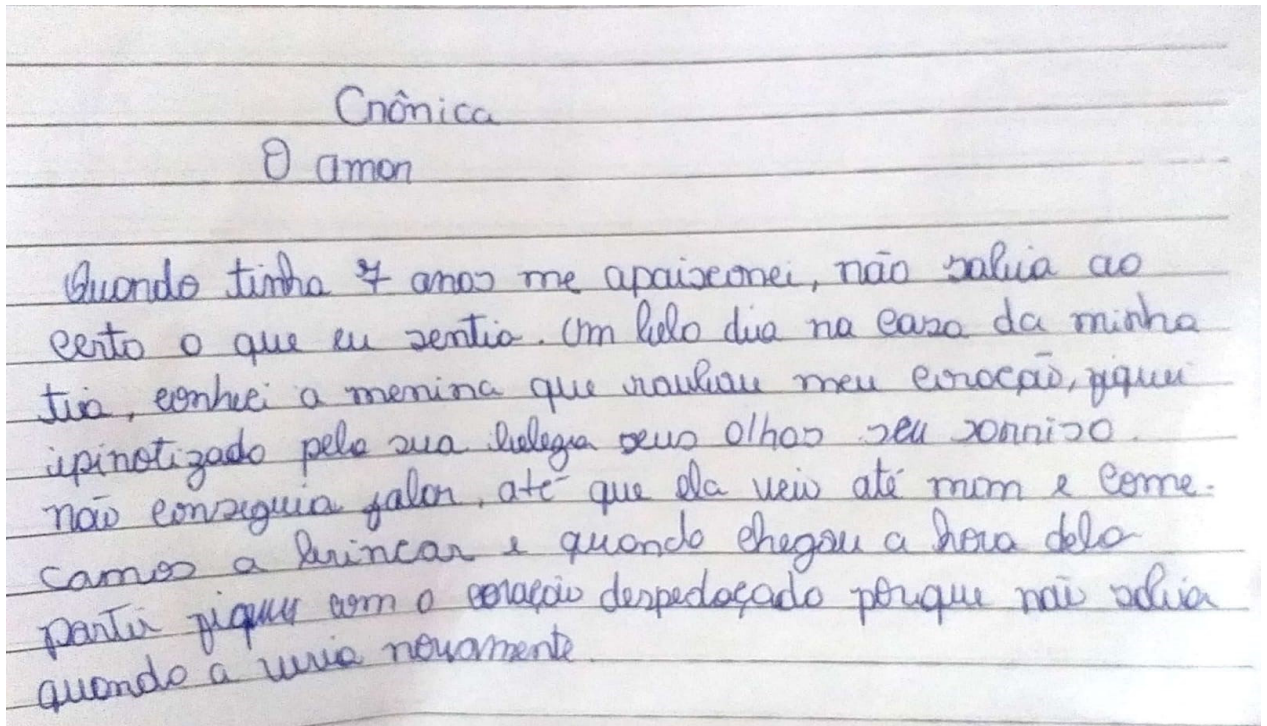 Crônica
O amor
Quando tinha 7 anos me apaixonei, não sabia ao
certo o que eu sentia. Um belo dia na casa da minha
tia, conheci a menina que roubou meu coração, fiquei
ipinotizado pela sua beleza seus olhos seu sorriso.
não conseguia falar, até que ela veio até mim e come-
camos a brincar e quando chegou a hora dela
partir fiquei com o coração despedaçado porque não sabia
quando a veria novamente.